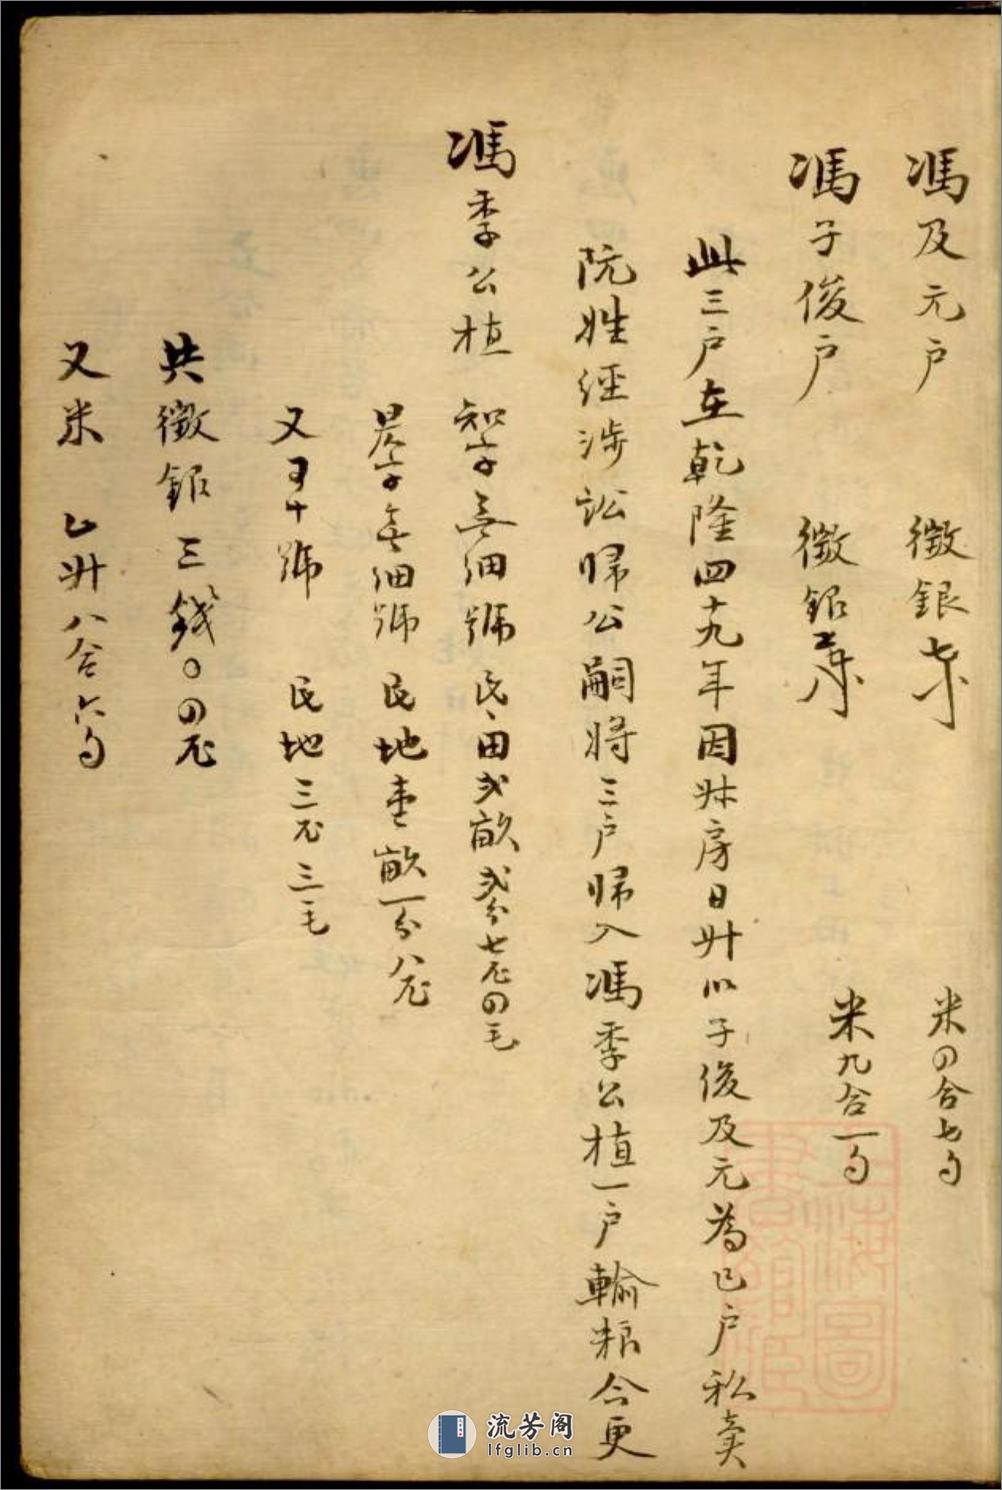 馮及元户 徵銀 米四合七勺
馮子俊户 徵銀 米九合一勺
此三户在乾隆四十九年因姝房日升以子俊及元為己户私賣
阮姓經涉訟歸公嗣將三户歸入馮季公植一户輸粮合更
馮季公植 字 細號 民田弍畝弍分七厘四毛
字 細號 民地壹畝一分八厘
又 十號 民地三厘三毛
共徵銀三錢〇四厘
又米 升八合六勺
上海圖書館藏
流芳阁
lfglib.cn